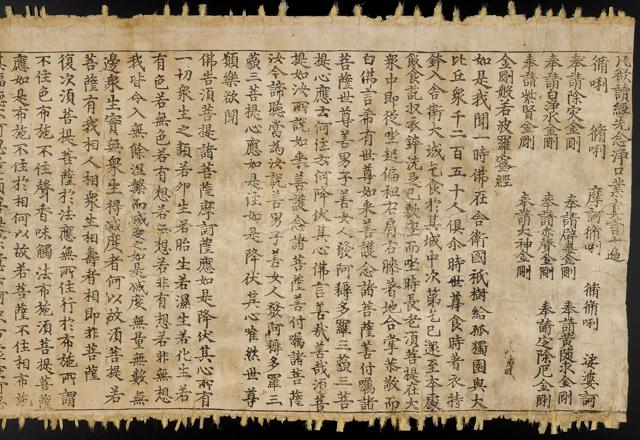 凡欲讀經先念淨口業真言一遍
脩唎 脩唎 摩訶脩唎 脩脩唎 娑婆訶
奉請除灾金剛 奉請辟毒金剛 奉請黃隨求金剛
奉請白淨水金剛 奉請赤聲金剛 奉請定除厄金剛
奉請紫賢金剛 奉請大神金剛
金剛般若波羅蜜經
如是我聞一時佛在舍衛國祇樹給孤獨園與大
比丘衆千二百五十人俱尒時世尊食時著衣持
鉢入舍衛大城乞食於其城中次第乞已還至本處
飯食訖収衣鉢洗足已敷座而坐時長老湏菩提在大
衆中即從坐起偏袒右肩右膝著地合掌恭敬而
白佛言希有世尊如來善護念諸菩薩善付囑諸
菩薩世尊善男子善女人發阿耨多羅三藐三菩
提心應云何住云何降伏其心佛言善哉善哉湏菩
提如汝所說如來善護念諸菩薩善付囑諸菩薩
汝今諦聽當為汝說善男子善女人發阿耨多羅三
藐三菩提心應如是住如是降伏其心唯然世尊
願樂欲聞
佛告湏菩提諸菩薩摩訶薩應如是降伏其心所有
一切衆生之類若卵生若胎生若濕生若化生若
有色若無色若有想若無想若非有想若非無想
我皆令入無餘涅槃而滅度之如是滅度無量無數無
邊衆生實無衆生得滅度者何以故湏菩提若
菩薩有我相人相衆生相壽者相即非菩薩
復次湏菩提菩薩於法應無所住行於布施所謂
不住色布施不住聲香味觸法布施湏菩提菩薩
應如是布施不住於相何以故若菩薩不住相布施